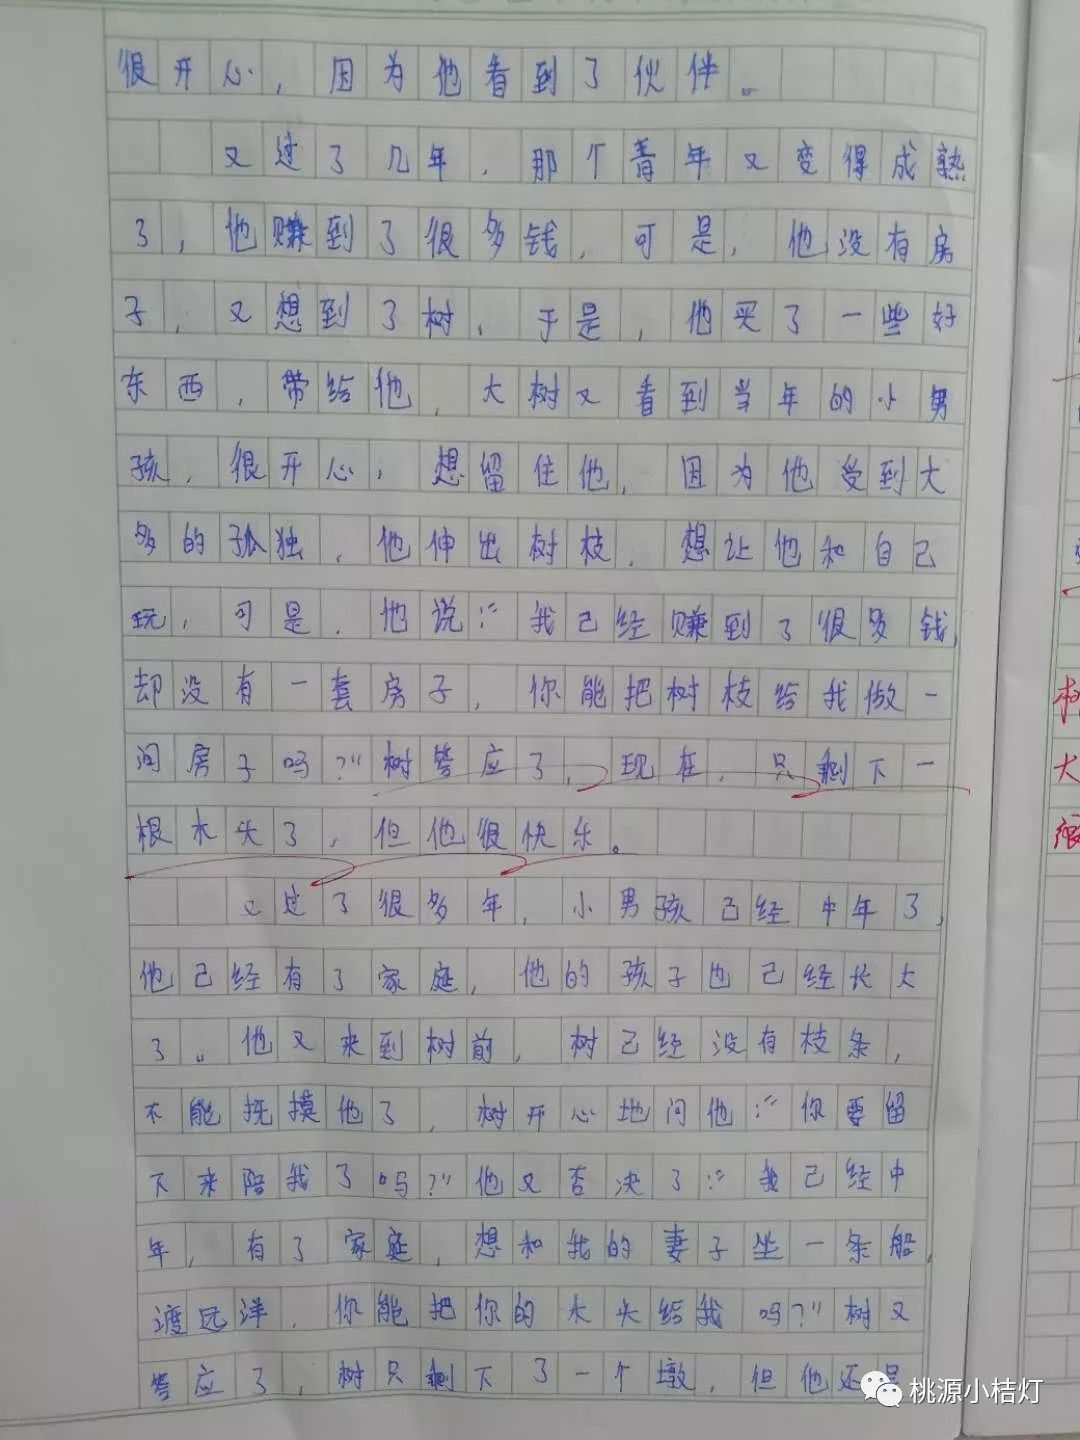 很开心，因为他看到了伙伴。
又过了几年，那个青年又变得成熟
了，他赚到了很多钱，可是，他没有房
子，又想到了树，于是，他买了一些好
东西，带给他，大树又看到当年的小男
孩，很开心，想留住他，因为他受到大
多的孤独，他伸出树枝，想让他和自己
玩，可是，他说：“我己经赚到了很多钱，
却没有一套房子，你能把树枝给我做一
间房子吗？”树答应了，现在，只剩下一
根木头了，但他很快乐。
又过了很多年，小男孩己经中年了，
他己经有了家庭，他的孩子也己经长大
了。他又来到树前，树己经没有枝条，
不能抚摸他了，树开心地问他：“你要留
下来陪我了吗？”他又否决了：“我己经中
年，有了家庭，想和我的妻子坐一条船，
渡远洋，你能把你的木头给我吗？”树又
答应了，树只剩下了一个墩，但他还是
桃源小桔灯
大